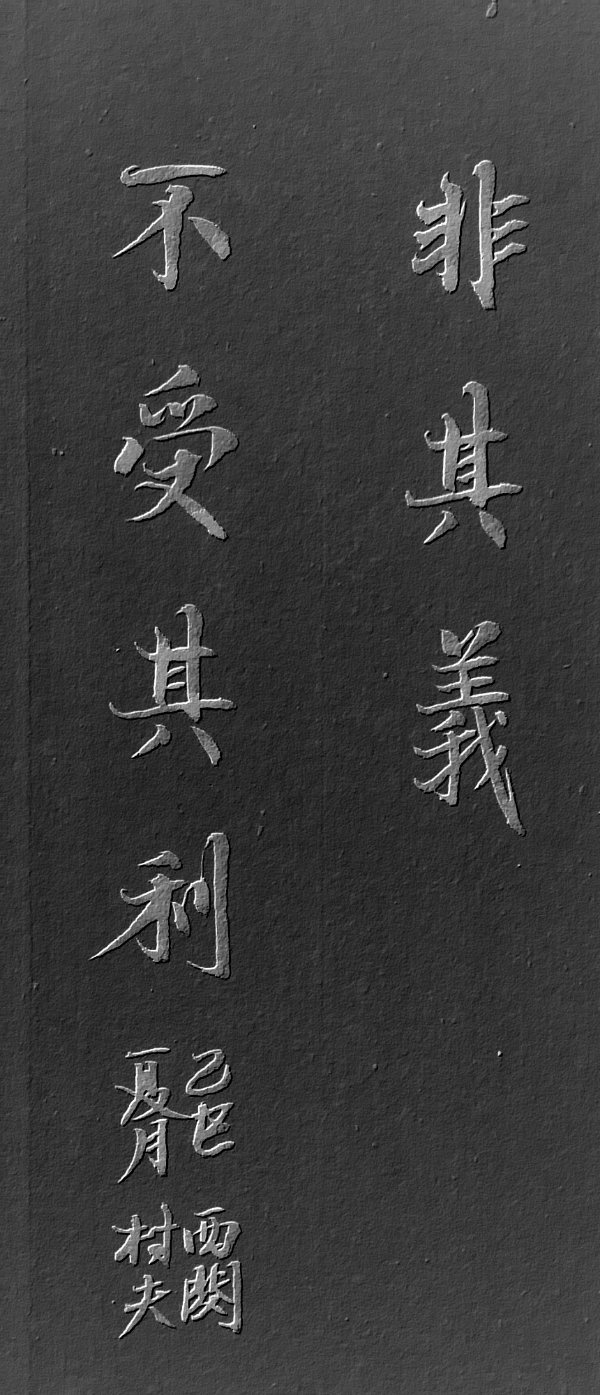 非其義
不受其利
乙巳
夏月
西関
村夫